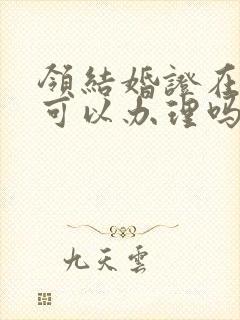 領結婚證在
可以办理吗
九天雲